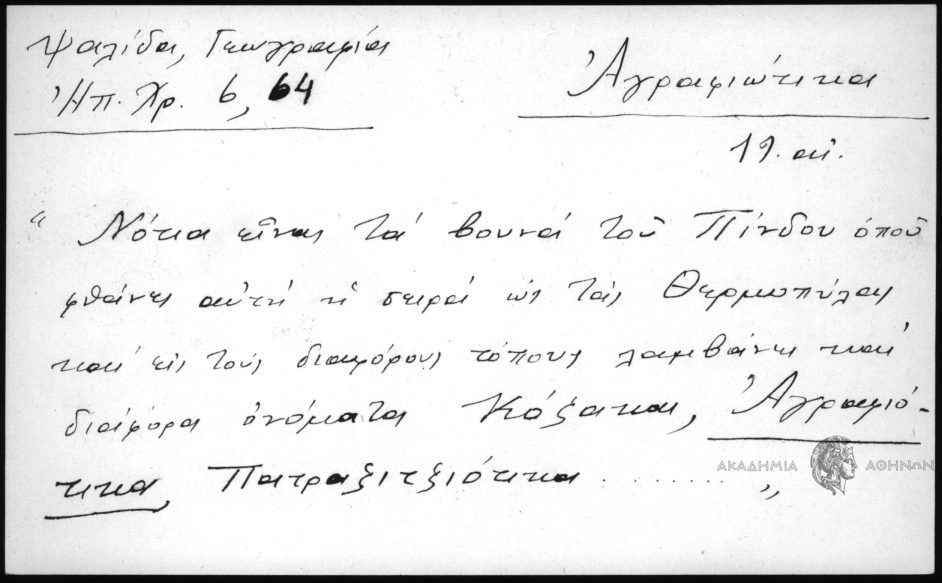 Ψαλίδα, Γεωγραφία
Ἠπ. Χρ. 6, 64
Ἀγραφιώτικα
19. αἰ.
“ Νότια εἶναι τὰ βουνὰ τοῦ Πίνδου ὁποῦ
φθάνει αὐτὴ ἡ σειρὰ ὡς τὰς Θερμοπύλας
καὶ εἰς τοὺς διαφόρους τόπους λαμβάνει καὶ
διάφορα ὀνόματα Κόζακας, Ἀγραφιό-
τικα, Πατραξιτξιότικα ........ „
ΑΚΑΔΗΜΙΑ ΑΘΗΝΩΝ